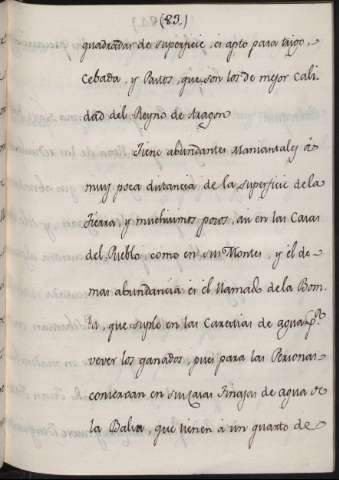 (83.)
quadradas de superficie, es apto para trigo,
Cebada, y Pastos, que son los de mejor Cali
dad del Reyno de Aragon
Tiene abundantes Manantiales á
muy poca distancia de la superficie de la
Tierra, y muchisimos pozos, asi en las Casas
del Pueblo como en sus Montes, y el de
mas abundancia es el llamado de la Bom
ba, que suple en las Carestias de agua pª
vever los ganados, pues para las Personas
conservan en sus Casas Tinajas de agua de
la Balsa, que tienen á un quarto de